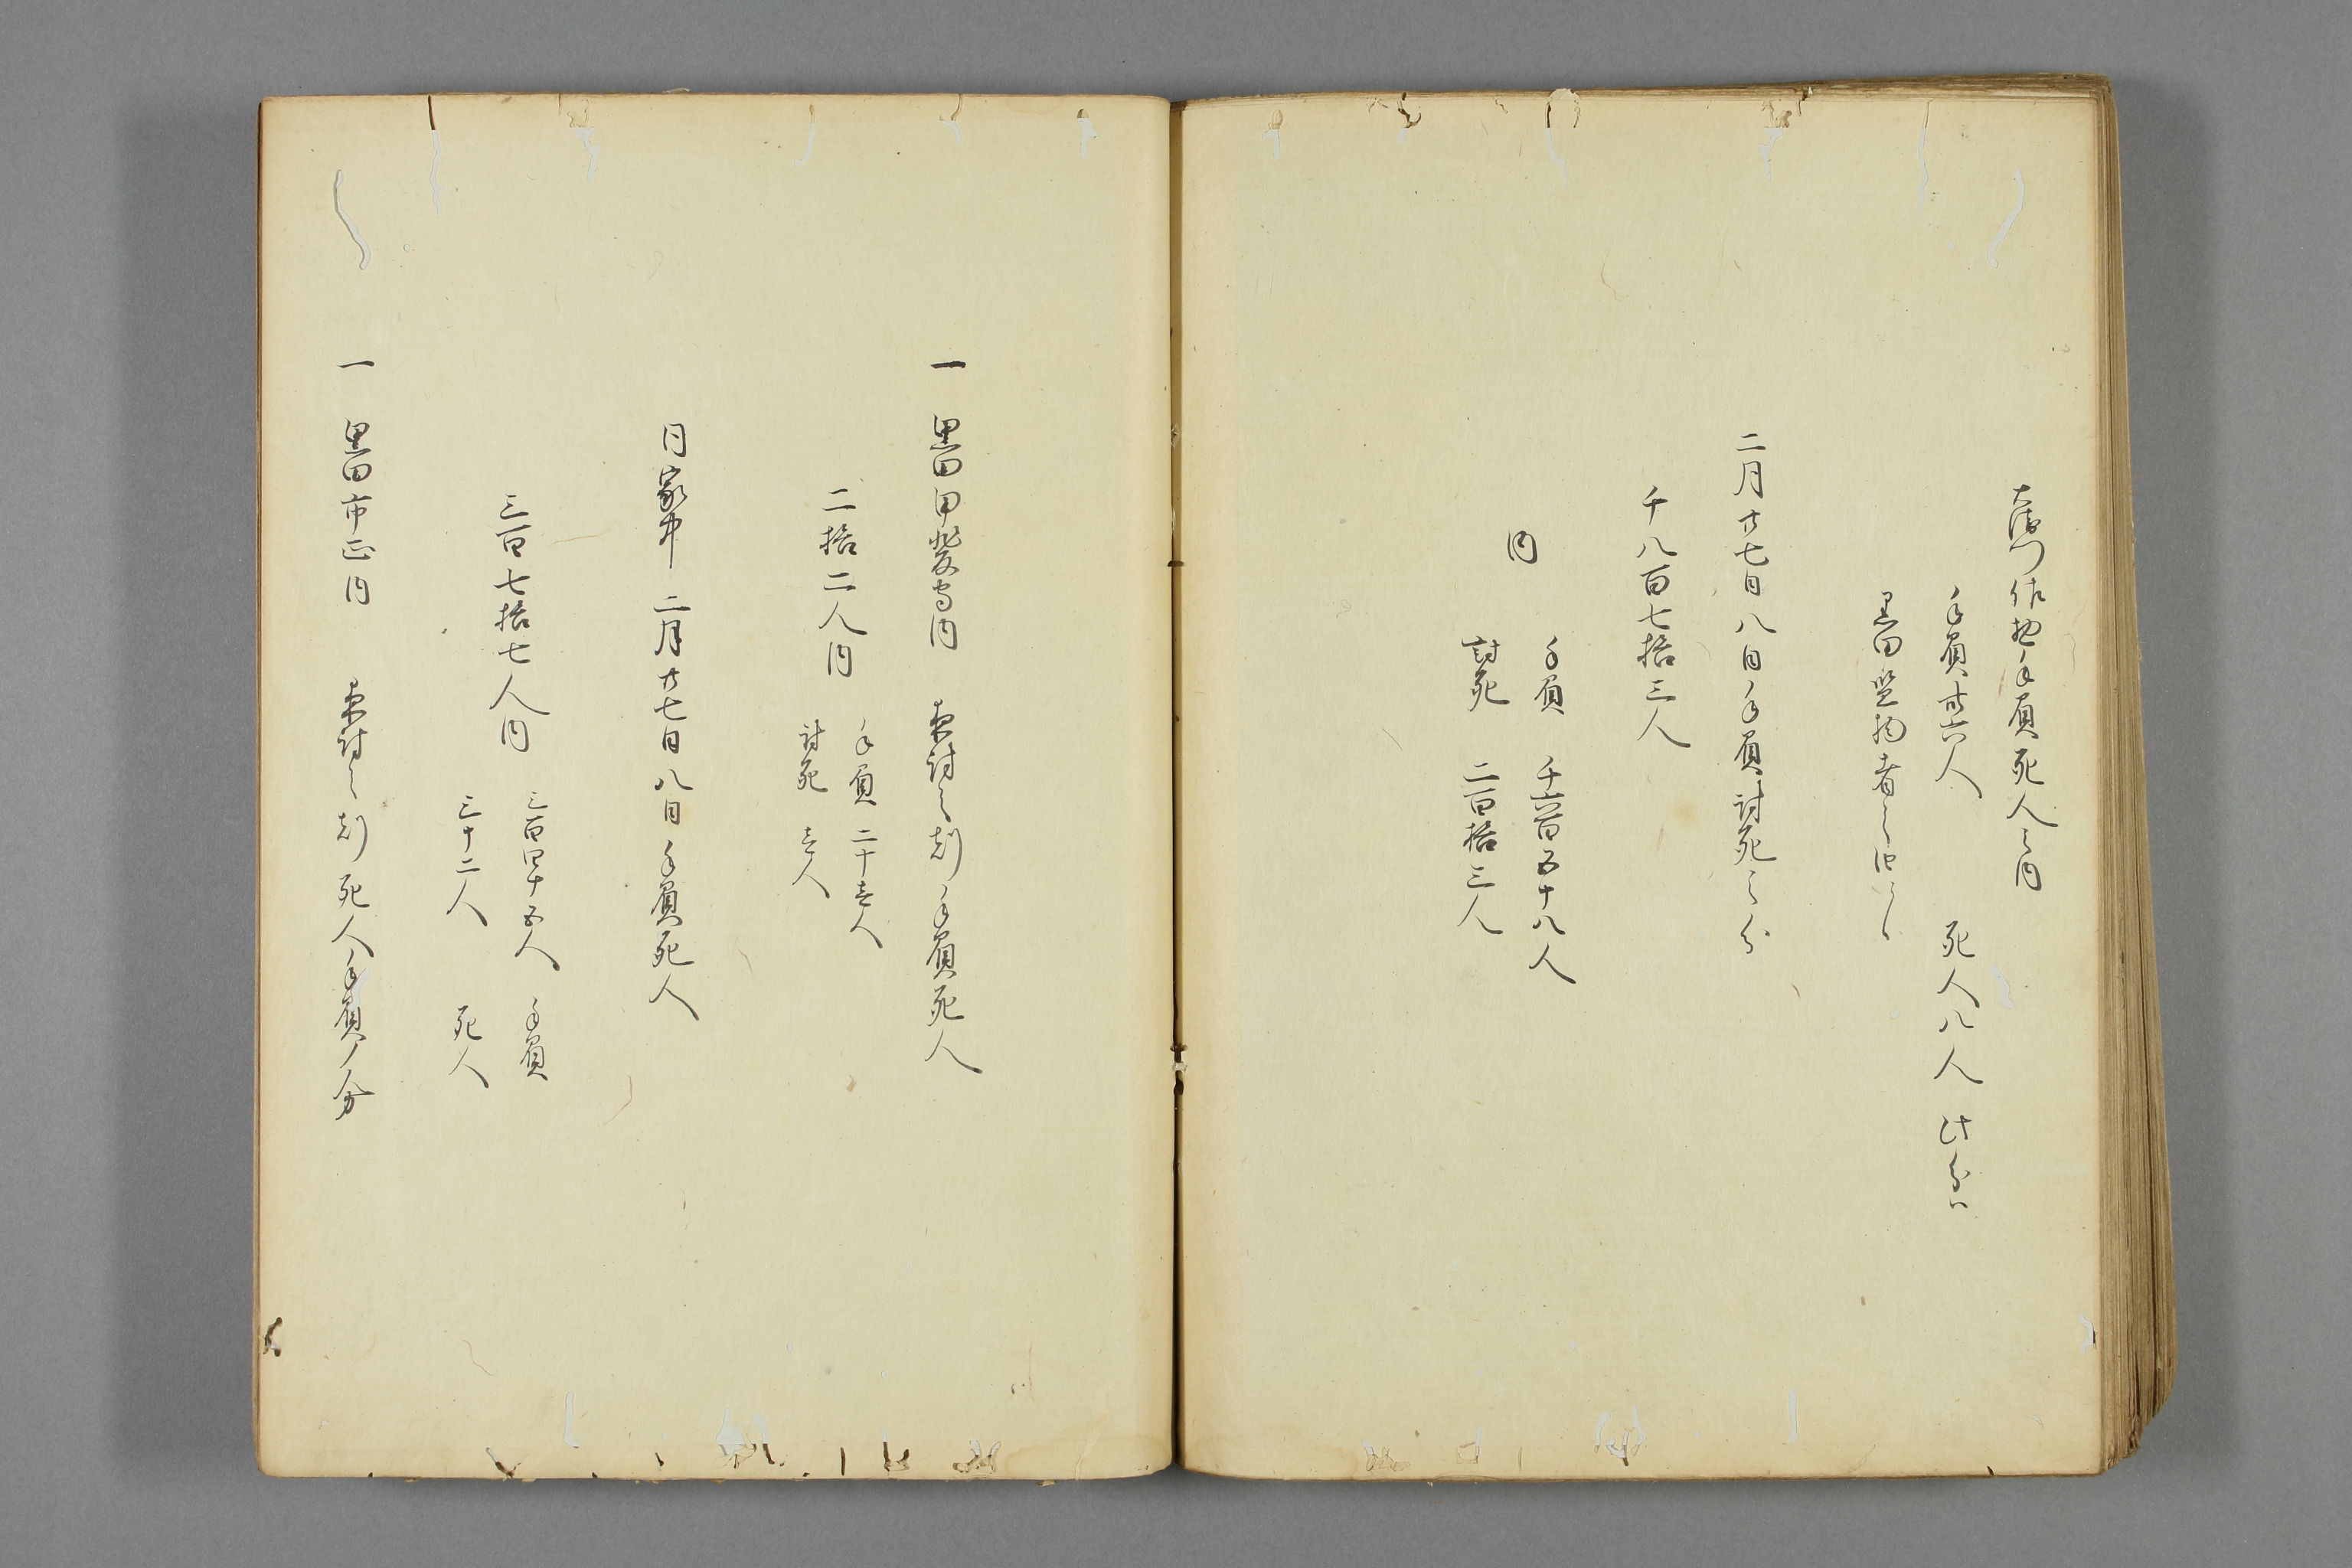 右衛門佐抱手負死人之内
手負廿六人 死人八人 此分ハ
黒田監物者之由
二月廿七日八日手負討死之分
千八百七拾三人
内
手負 千六百五十八人
討死 二百拾三人
一 黒田甲斐守内 夜討之刻ノ手負死人
二拾二人内
手負 二十壱人
討死 壱人
同家中 二月廿七日八日手負死人
三百七拾七人内
三百四十五人 手負
三十二人 死人
一 黒田市正内 夜討之刻死人手負ノ分